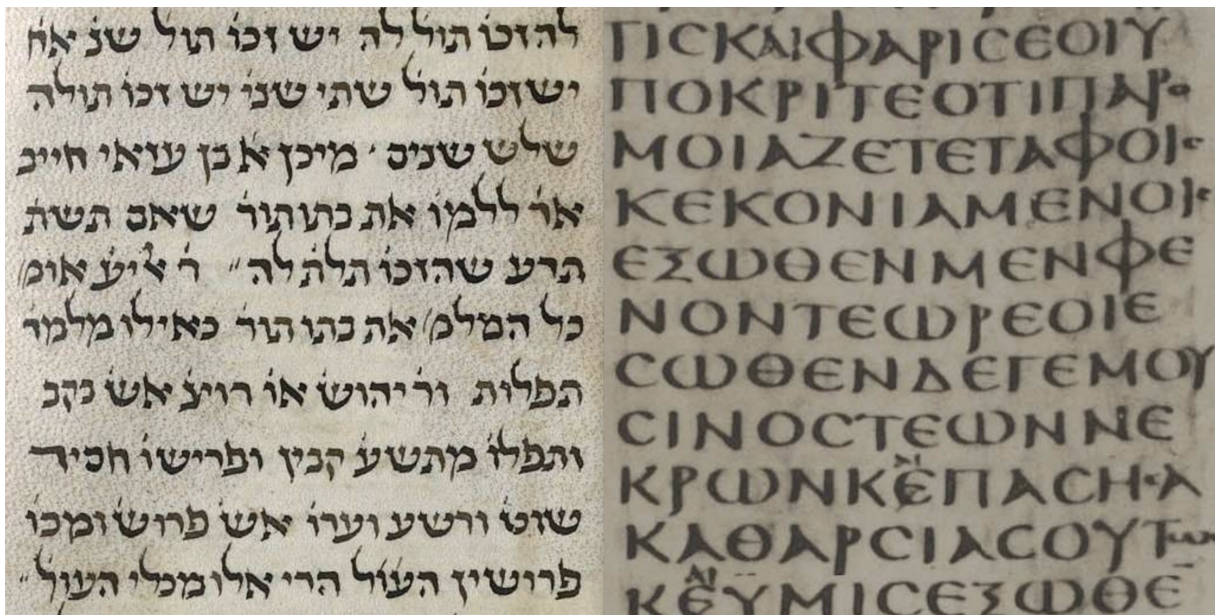 להזכו׳ תול׳ לה יש זכו׳ תול׳ שנ׳ אח׳
יש זכו׳ תול׳ שתי שני׳ יש זכו׳ תולה
שלש שנים · מיכן א׳ בן עזאי חייב
אד׳ ללמד את בתו תור׳ שאם תשת׳
תדע שהזכו׳ תלת׳ לה״ ר׳ אליע׳ אומ׳
כל המלמ׳ את בתו תור׳ כאילו מלמד׳
תפלות ור׳ יהוש׳ או׳ רוצ׳ אש׳ בקב
ותפלו׳ מתשע׳ קבין ופרישו׳ חסיד
שוט׳ ורשע ערו׳ אש׳ פרוש׳ ומכו׳
פרושין העול׳ הרי אלו מכלי העול׳״
ΓΙϹΚΑΙΦΑΡΙϹΕΟΙΥ
ΠΟΚΡΙΤΕΟΤΙΠΑΡΟ
ΜΟΙΑΖΕΤΕΤΑΦΟΙϹ
ΚΕΚΟΝΙΑΜΕΝΟΙϹ
ΕΞΩΘΕΝΜΕΝΦΕ
ΝΟΝΤΕΩΡΕΟΙΕ
ϹΩΘΕΝΔΕΓΕΜΟΥ
ϹΙΝΟϹΤΕΩΝΝΕ
ΚΡΩΝΚΕΠΑϹΗϹΑ
ΚΑΘΑΡϹΙΑϹΟΥΤΩ
ΚΕΫΜΙϹΕΞΩΘΕ